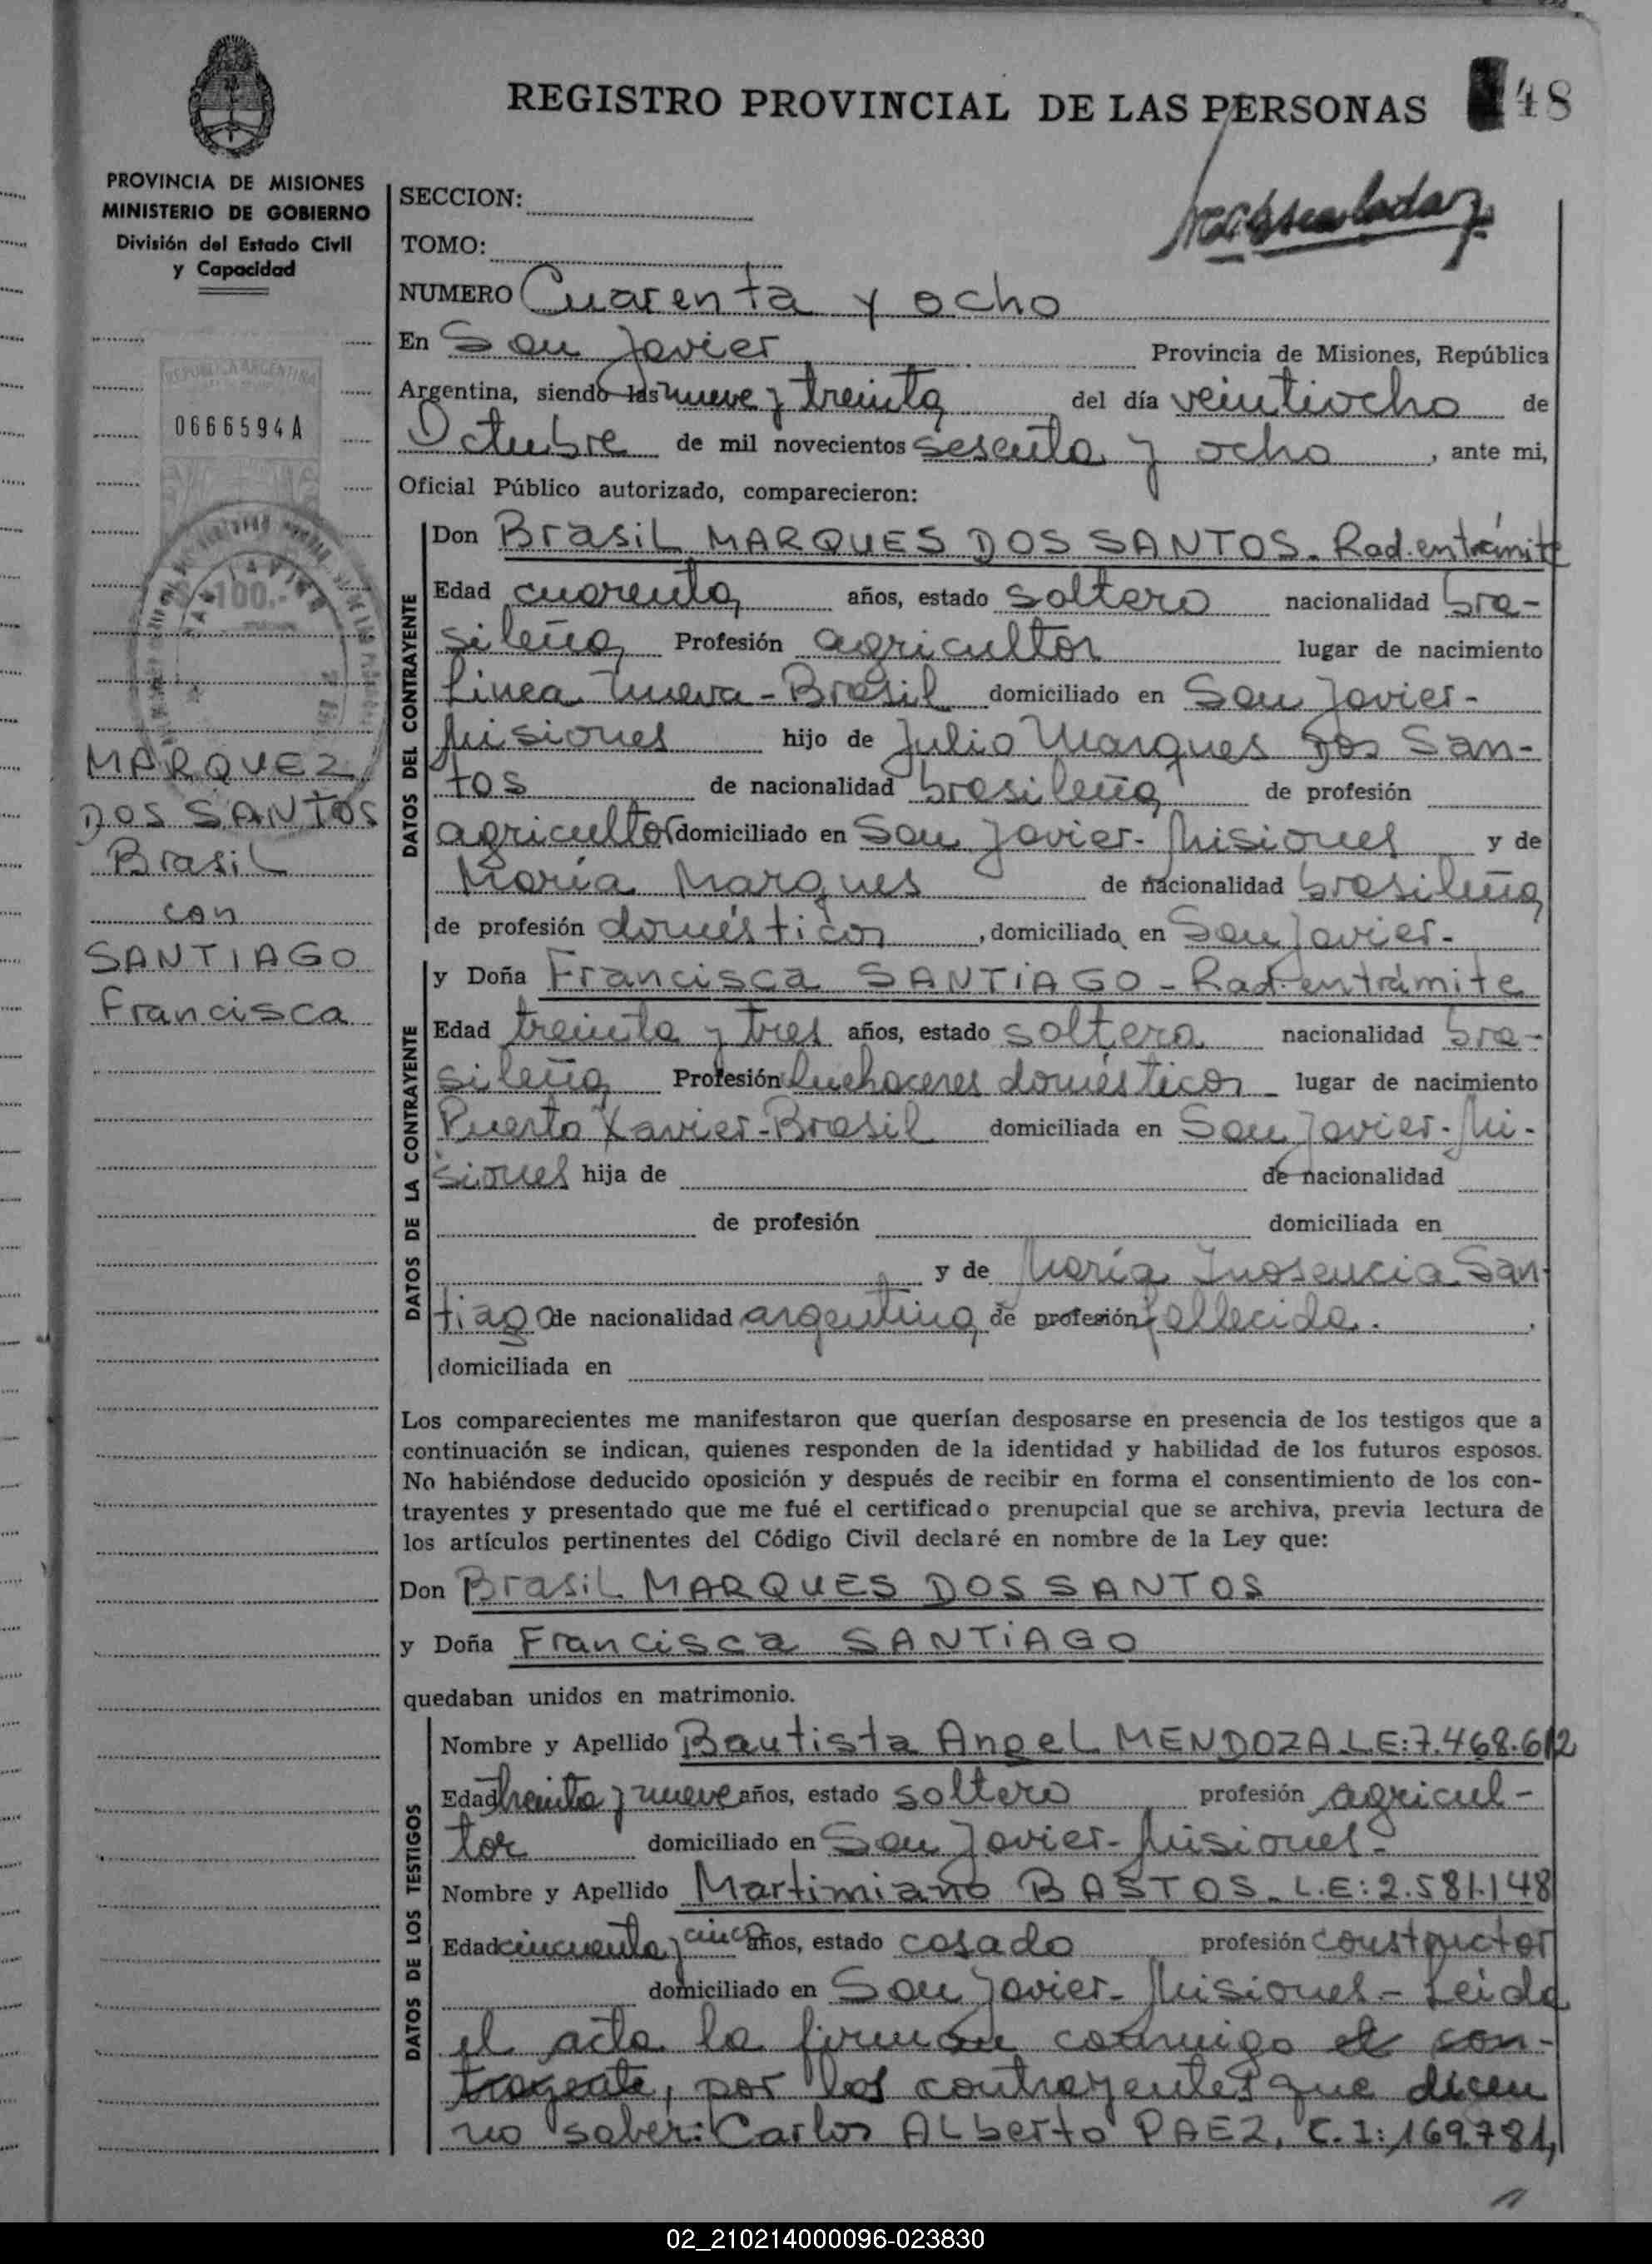 REGISTRO PROVINCIAL DE LAS PERSONAS
48
PROVINCIA DE MISIONES
MINISTERIO DE GOBIERNO
División del Estado Civil
y Capacidad
REPUBLICA ARGENTINA
0666594A
100.-
MARQUEZ
DOS SANTOS
Brasil
con
SANTIAGO
Francisca
SECCION:
TOMO:
NUMERO Cuarenta y ocho
En San Javier Provincia de Misiones, República
Argentina, siendo las nueve y treinta del día veintiocho de
Octubre de mil novecientos sesenta y ocho, ante mi,
Oficial Público autorizado, comparecieron:
DATOS DEL CONTRAYENTE
Don Brasil MARQUES DOS SANTOS. Rad. en trámite
Edad cuarenta años, estado soltero nacionalidad bra-
sileña Profesión agricultor lugar de nacimiento
Linea Nueva - Brasil domiciliado en San Javier-
Misiones hijo de Julio Marques Dos San-
tos de nacionalidad brasileña de profesión
agricultor domiciliado en San Javier- Misiones y de
María Marques de nacionalidad brasileña
de profesión domésticos, domiciliado en San Javier-
DATOS DE LA CONTRAYENTE
y Doña Francisca SANTIAGO - Rad. en trámite
Edad treinta y tres años, estado soltera nacionalidad bra-
sileña Profesión quehaceres domésticos lugar de nacimiento
Puerto Xavier-Brasil domiciliada en San Javier- Mi-
siones hija de de nacionalidad
de profesión domiciliada en
y de María Inosencia San-
tiago de nacionalidad argentina de profesión fallecida.
domiciliada en
Los comparecientes me manifestaron que querían desposarse en presencia de los testigos que a
continuación se indican, quienes responden de la identidad y habilidad de los futuros esposos.
No habiéndose deducido oposición y después de recibir en forma el consentimiento de los con-
trayentes y presentado que me fué el certificado prenupcial que se archiva, previa lectura de
los artículos pertinentes del Código Civil declaré en nombre de la Ley que:
Don Brasil MARQUES DOS SANTOS
y Doña Francisca SANTIAGO
quedaban unidos en matrimonio.
DATOS DE LOS TESTIGOS
Nombre y Apellido Bautista Angel MENDOZA L E: 7.468.612
Edad treinta y nueve años, estado soltero profesión agricul-
tor domiciliado en San Javier- Misiones-
Nombre y Apellido Martimiano BASTOS. L.E: 2.581.148
Edad cincuenta y cinco años, estado casado profesión constructor
domiciliado en San Javier- Misiones - Leída
el acta la firman conmigo el con-
trayente, por los contrayentes que dicen
no saber: Carlos ALberto PAEZ, C.I: 169.781,
02_210214000096-023830